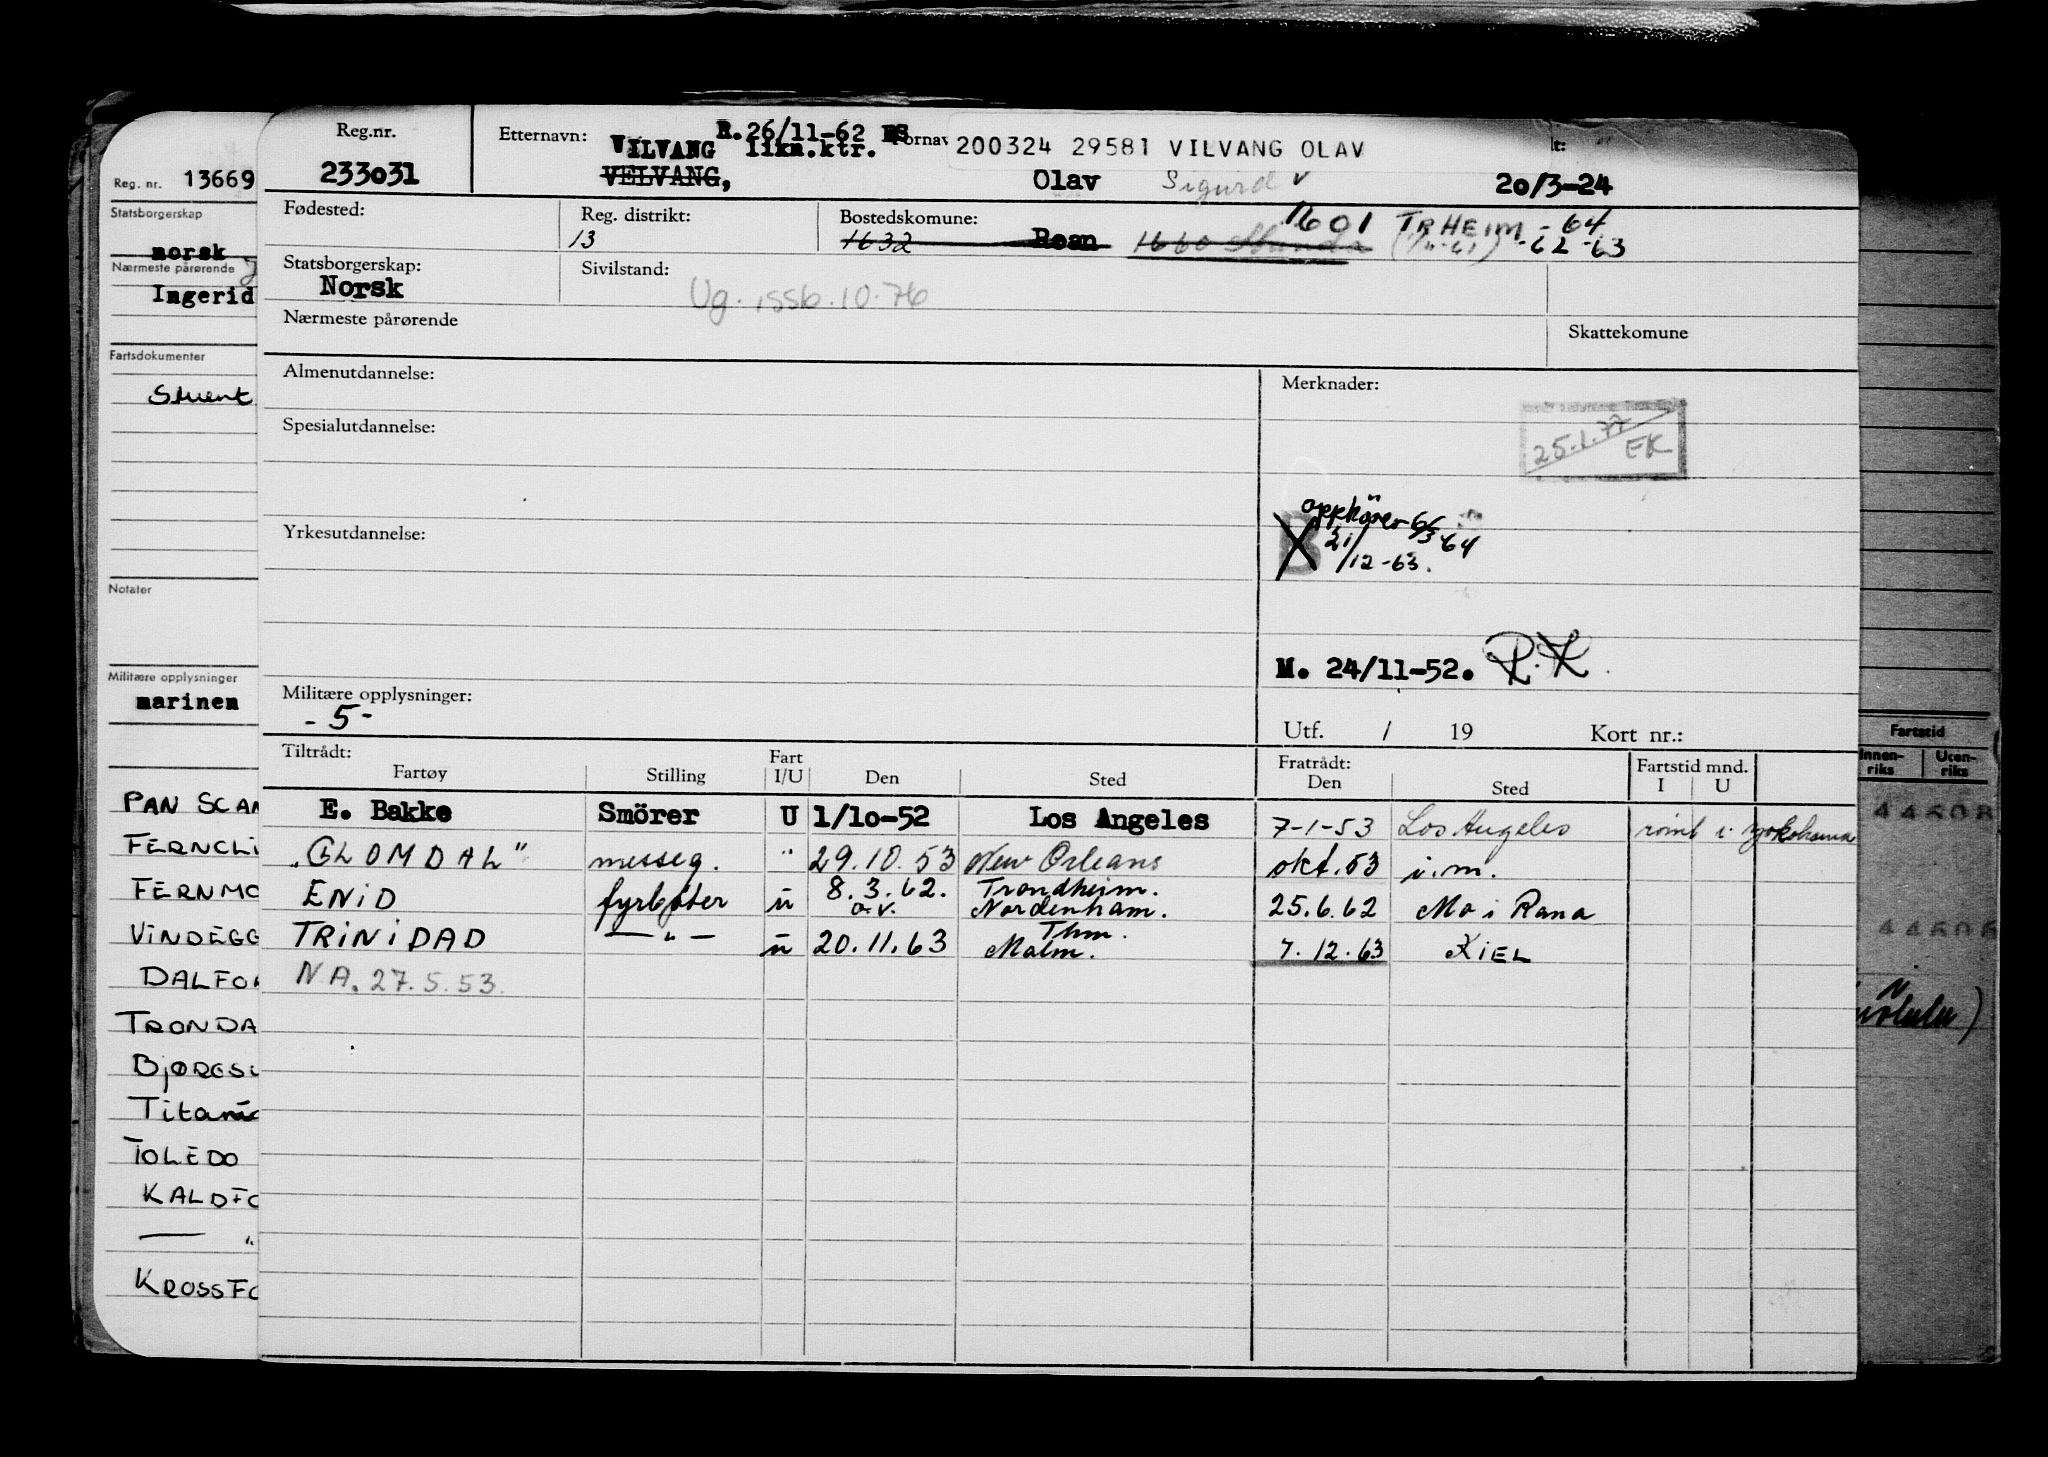 Reg. nr. 13669
Statsborgerskap
norsk
Nærmeste pårørende
Ingerid
Fartsdokumenter
Notater
Militære opplysninger
marinen
PAN SCAN
FERNCLI
FERNMO
VINDEGG
DALFO
TRONDA
BJØRGS
Titan
TOLEDO
KALDFO
— "
KROSSFO
Reg.nr.
233031
Etternavn: R. 26/11-62 ES Fornav 200324 29581 VILVANG OLAV lt:
VILVANG likn.ktr.
VELVANG, Olav Sigurd v 20/3-24
Fødested: Reg. distrikt: Bostedskomune: 1601 TRHEIM - 64
13 1632 Roan 1660 -62 -63
Statsborgerskap: Sivilstand:
Norsk Ug. issb. 10.76
Nærmeste pårørende Skattekomune
Almenutdannelse: Merknader:
25.1.77 EK
Spesialutdannelse:
opphörer
Yrkesutdannelse: B 21/12-63.
M. 24/11-52.
Militære opplysninger:
- 5 -
Utf. / 19 Kort nr.:
Tiltrådt: Fart Fratrådt: Fartstid mnd.
Fartøy Stilling I/U Den Sted Den Sted I U
E. Bakke Smörer U 1/10-52 Los Angeles 7-1-53 Los Angeles römt i Yokohama
"GLOMDAL" messeg. " 29.10.53 New Orleans okt.53 i.m.
ENID fyrbøter u 8.3.62. Trondheim.
Nordenham. 25.6.62 Mo i Rana
TRINIDAD — " — u 20.11.63 Thm.
Malm. 7.12.63 KIEL
N.A. 27.5.53.
Fartstid
Innen-riks Uten-riks